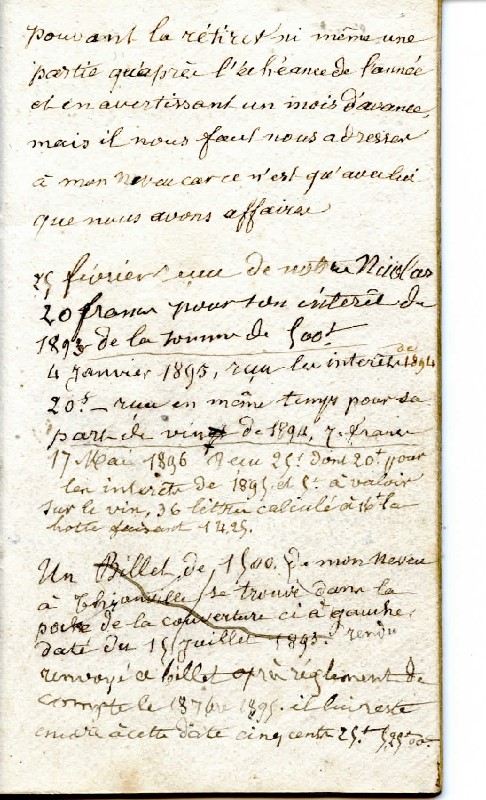 pouvant la retirer ni même une
partie qu'aprèe l'échéance de l'année
et en avertissant un mois d'avance,
mais il nous faut nous adresser
à mon Neveu car ce n'est qu'avec lui
que nous avons affaire
25 février reçu de notre Nicolas
20 francs pour son intérêt de
1893 de la somme de 500f
4 Janvier 1895, reçu les intérêts de 1894
20f_ reçu en même temps pour sa
part de vin de 1894, 7 francs
17 Mai 1896 Reçu 25f dont 20f pour
les interêts de 1895 et 5f à valoir
sur le vin, 36 litres calculé à 16f la
hotte faisant 14.25.
Un Billet de 1500. de mon Neveu
à Thionville se trouve dans la
poche de la couverture ci à gauche,
daté du 15 Juillet 1893. rendu
renvoyé ce billet après réglement de
compte le 18 7bre 1895. il lui reste
encore à cette date cinq cents 25f 525f 00c